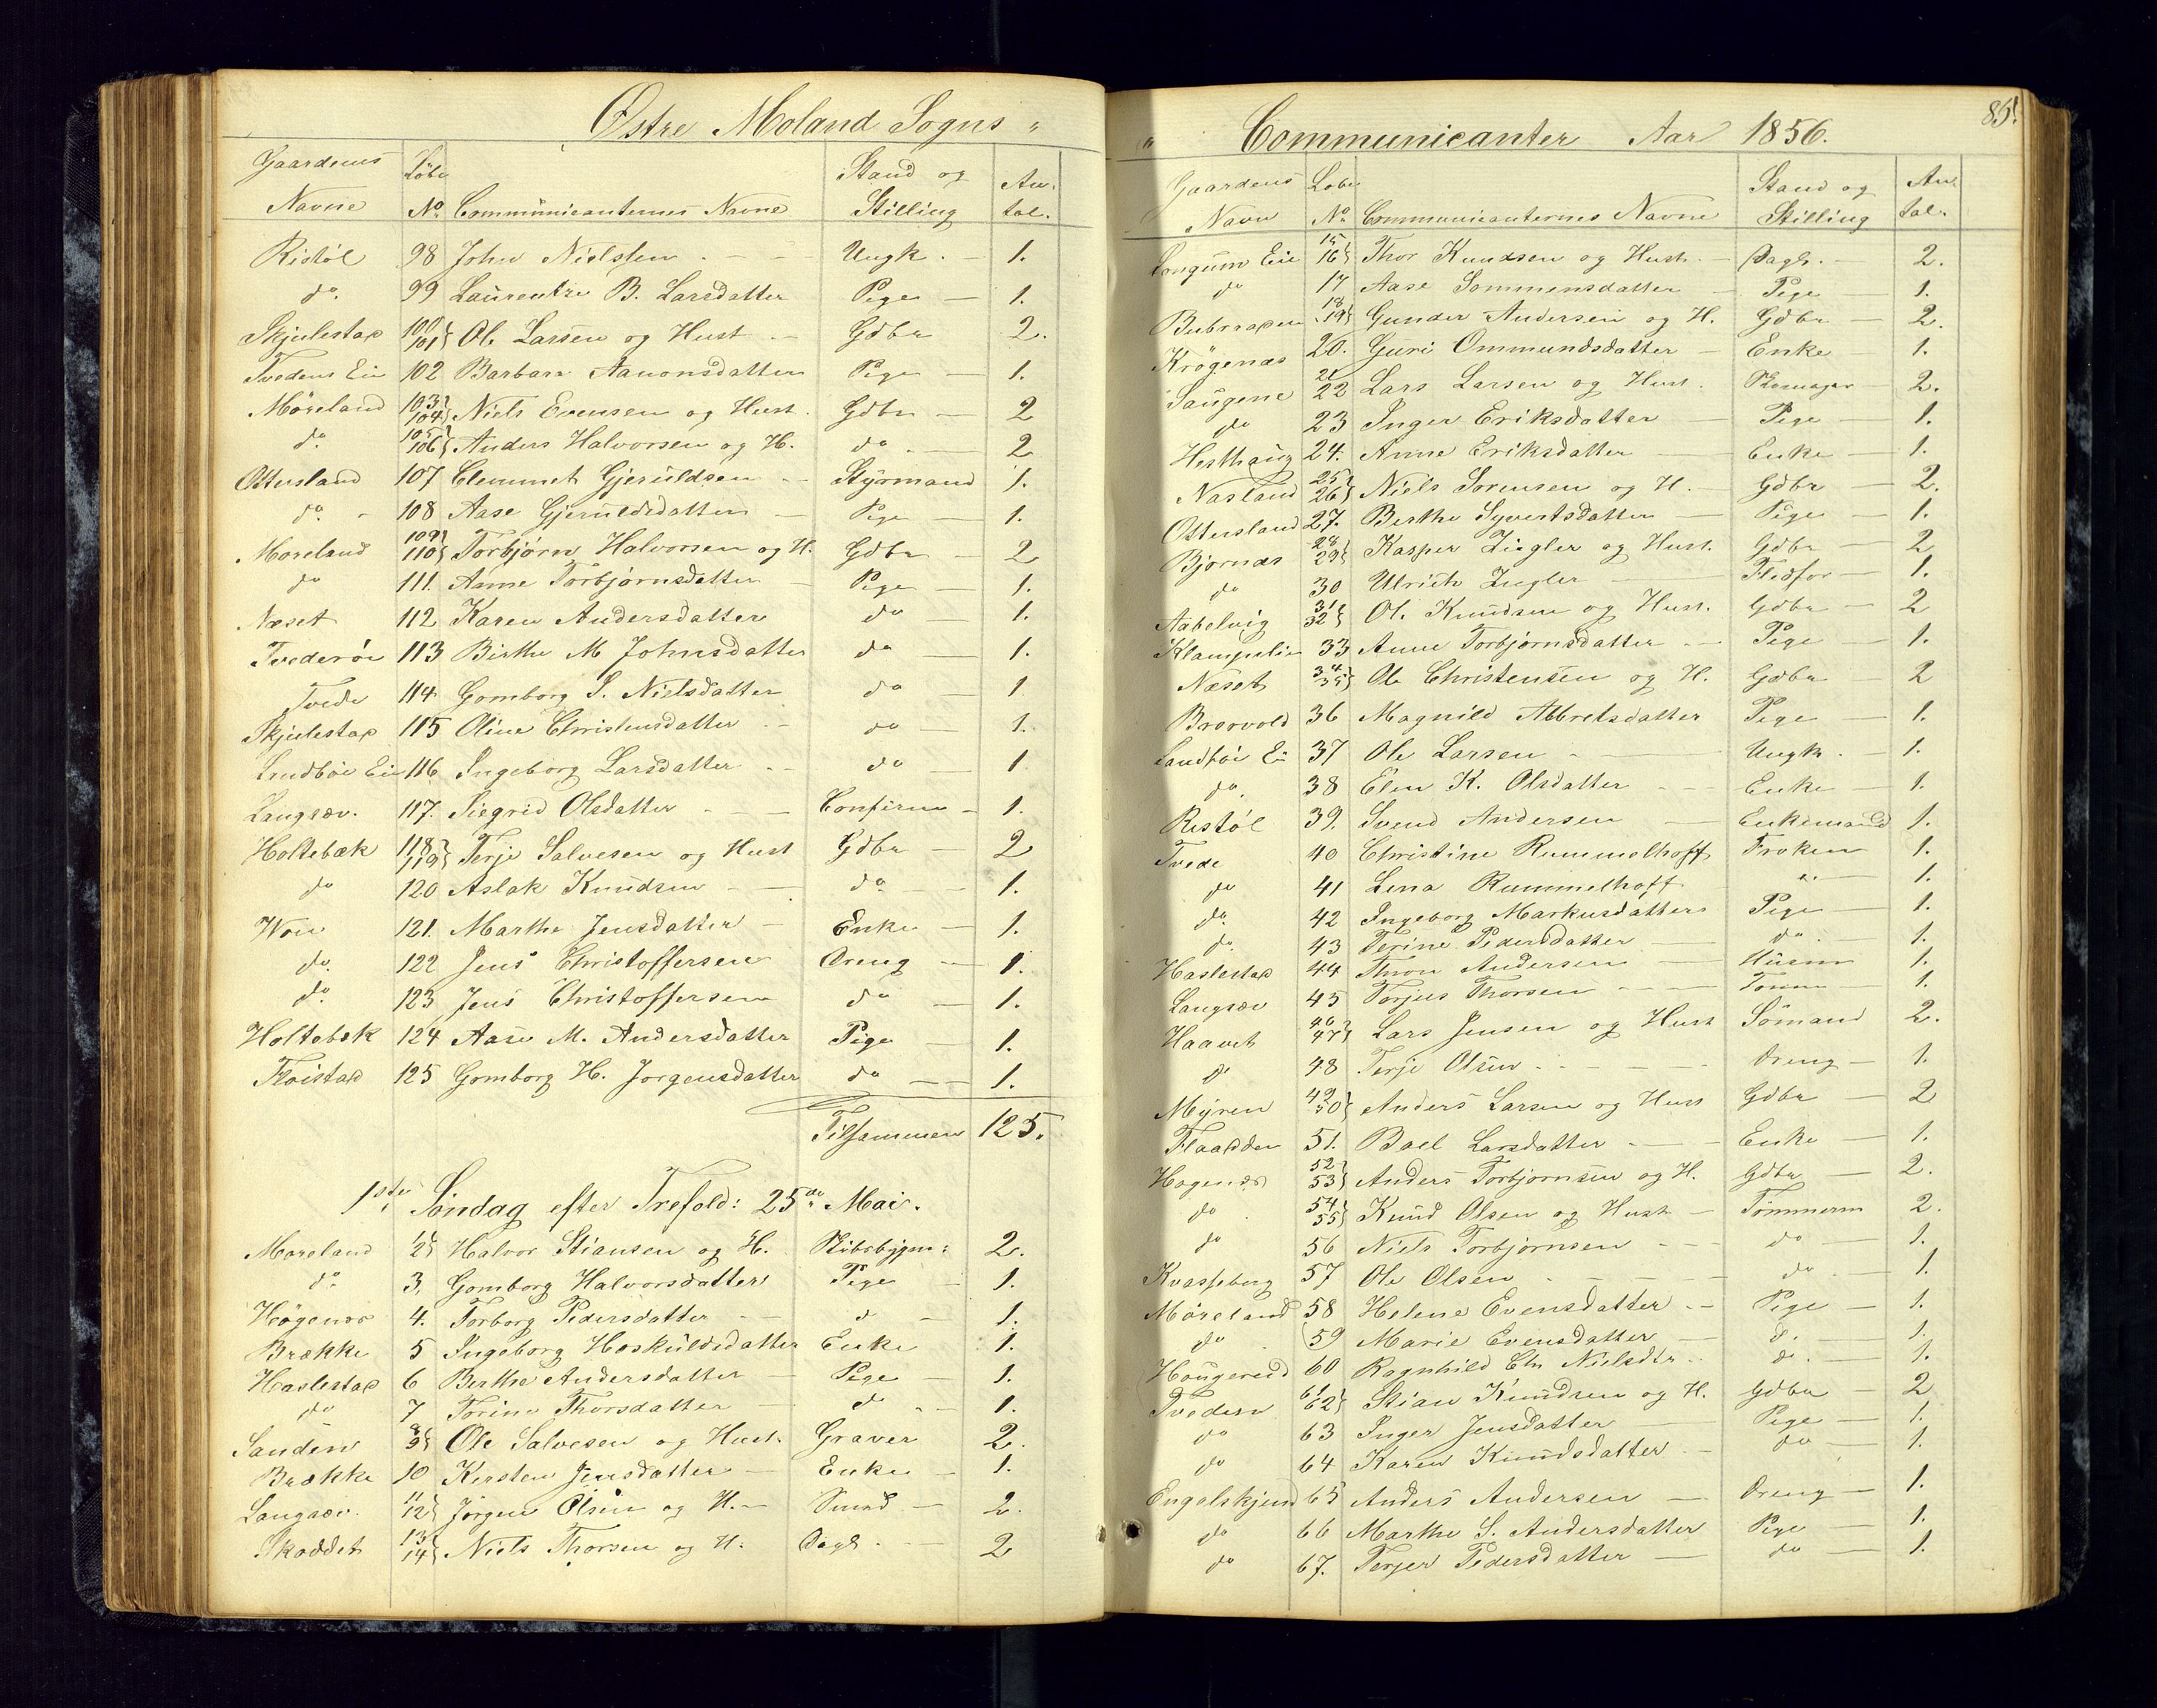 Østre Moland Sogns "
Gaardens Navne Løbe No. Communicanternes Navne Stand og Stilling An-tal.
Ristøl 98 John Nielsen Ungk. 1.
do. 99 Laurentze B. Larsdatter Pige 1.
Skjulestad 100 101 Ole Larsen og Hust Gdbr 2.
Tvedens Eie 102 Barbara Aanonsdatter Pige 1.
Møreland 103 104 Niels Evensen og Hust. Gdbr 2
do. 105 106 Anders Halvorsen og H. do 2
Ottersland 107 Clemmet Gjeruldsen Styrmand 1.
do. 108 Aase Gjeruldsdatter Pige 1.
Moreland 109 110 Torbjørn Halvorsen og H. Gdbr 2
do 111. Anne Torbjørnsdatter Pige 1.
Næset 112 Karen Andersdatter do 1.
Tvederøe 113 Birthe M Johnsdatter do 1.
Tvede 114 Gomborg S. Nielsdatter do 1
Skjulestad 115 Oline Christensdatter do 1.
Sndbøe Eie 116 Ingeborg Larsdatter do 1
Langsæv. 117. Siegrid Olsdatter Confirm 1.
Holtebæk 118 119 Terje Salvesen og Hust Gdbr 2
do 120 Aslak Knudsen do. 1.
Woie 121. Marthe Jensdatter Enke 1.
do. 122 Jens Christoffersen Dreng 1.
do. 123 Jens Christoffersen do 1.
Holtebæk 124 Aase M. Andersdatter Pige 1.
Fløistad 125 Gomborg H. Jorgensdatter do 1.
Tilsammen 125.
1ste Søndag efter Trefold: 25de Mai.
Moreland 1 2 Halvor Stiansen og H. Skibsbygm: 2.
do 3, Gomborg Halvorsdatter Pige 1.
Høgenæs 4. Torborg Pedersdatter do 1.
Brække 5 Ingeborg Hoskuldsdatter Enke 1.
Haslestad 6 Berthe Andersdatter Pige 1.
do 7 Torine Thorsdatter do 1.
Sanden 8 9 Ole Salvesen og Hust. Graver 2.
Brække 10 Kirsten Jensdatter Enke 1.
Langsæv. 11 12 Jørgen Olsen og H. Smed 2.
Skoddet 13 14 Niels Thorsen og H. Dagl. 2
" Communicanter Aar 1856. 85.
Gaardens Navn Lobe No. Communicanternes Navne Stand og Stilling An-tal.
Longum Eie 15 16 Thor Knudsen og Hust. Dagl. 2.
do 17 Aase Sommensdatter Pige 1.
18 19 Gunder Andersen og H. Gdbr 2.
Krøgenæs 20. Guri Ommundsdatter Enke 1.
Saugene 21 22 Lars Larsen og Hust. 2.
do 23 Inger Eriksdatter Pige 1.
Hesthaug 24. Anne Eriksdatter Enke 1.
Næsland 25 26 Niels Sorensen og H. Gdbr 2.
Ottersland 27. Berthe Syvertsdatter Pige 1.
Bjornæs 28 29 Kasper Ziegler og Hust. Gdbr 2
do 30 Ulrich Ziegler Flødfor 1.
Aabelvig 31 32 Ole Knudsen og Hust. Gdbr 2
Klampelie 33 Anne Torbjornsdatter Pige 1.
Næset 34 35 Ole Christensen og H. Gdbr 2
Brorvold 36 Magnild Albretsdatter Pige 1.
Sandbøe Ei 37 Ole Larsen Ungk. 1.
do. 38 Elen K. Olsdatter Enke 1.
Ristøl 39. Svend Andersen Enkemand 1.
Tvede 40 Christine Rummelhoff Froken 1.
do 41 Lena Rummelhoff do 1.
do. 42 Ingeborg Markusdatter Pige 1.
do. 43 Terine Pedersdatter do 1.
Haslestad 44 Thron Andersen Husm 1.
Langsæv 45 Torjus Thorsen Tomm 1.
Haavet 46 47 Lars Jensen og Hust Sømand 2.
do 48 Terje Olsen Dreng 1.
Myren 49 50 Anders Larsen og Hust Gdbr 2
Flaadden 51. Boel Larsdatter Enke 1.
Hogenæs 52 53 Anders Torbjornsen og H. Gdbr 2.
do 54 55 Knud Olsen og Hust Tømmerm 2.
do 56 Niels Torbjornsen do 1.
Kvasseborg 57 Ole Olsen do 1.
Møreland 58 Helene Evensdatter Pige 1.
do 59 Marie Evensdatter do. 1.
Hougerud 60 Ragnhild Ch. Nielsdtr do. 1.
Tveden 61 62 Stian Knudsen og H. Gdbr 2
do 63 Inger Jensdatter Pige 1.
do 64 Karen Knudsdatter do 1.
Engelskjend 65 Anders Andersen Dreng 1.
do 66 Marthe S. Andersdatter Pige 1.
do 67. Terjer Pedersdatter do 1.